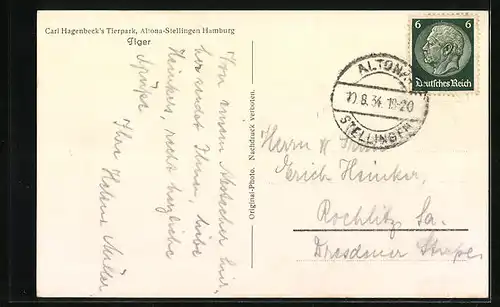 Carl Hagenbeck's Tierpark, Altona-Stellingen Hamburg
Tiger
Von einem Abstecher hier-
her sendet Ihnen, liebe
Heinkers, recht herzliche
Grüße
Ihre Helene Müller
Original-Photo. Nachdruck verboten.
6 6
Deutsches Reich
ALTONA
10.8.34. 19-20
STELLINGEN
Herrn u.
Erich Heinker,
Rochlitz Sa.
Dresdener Straße